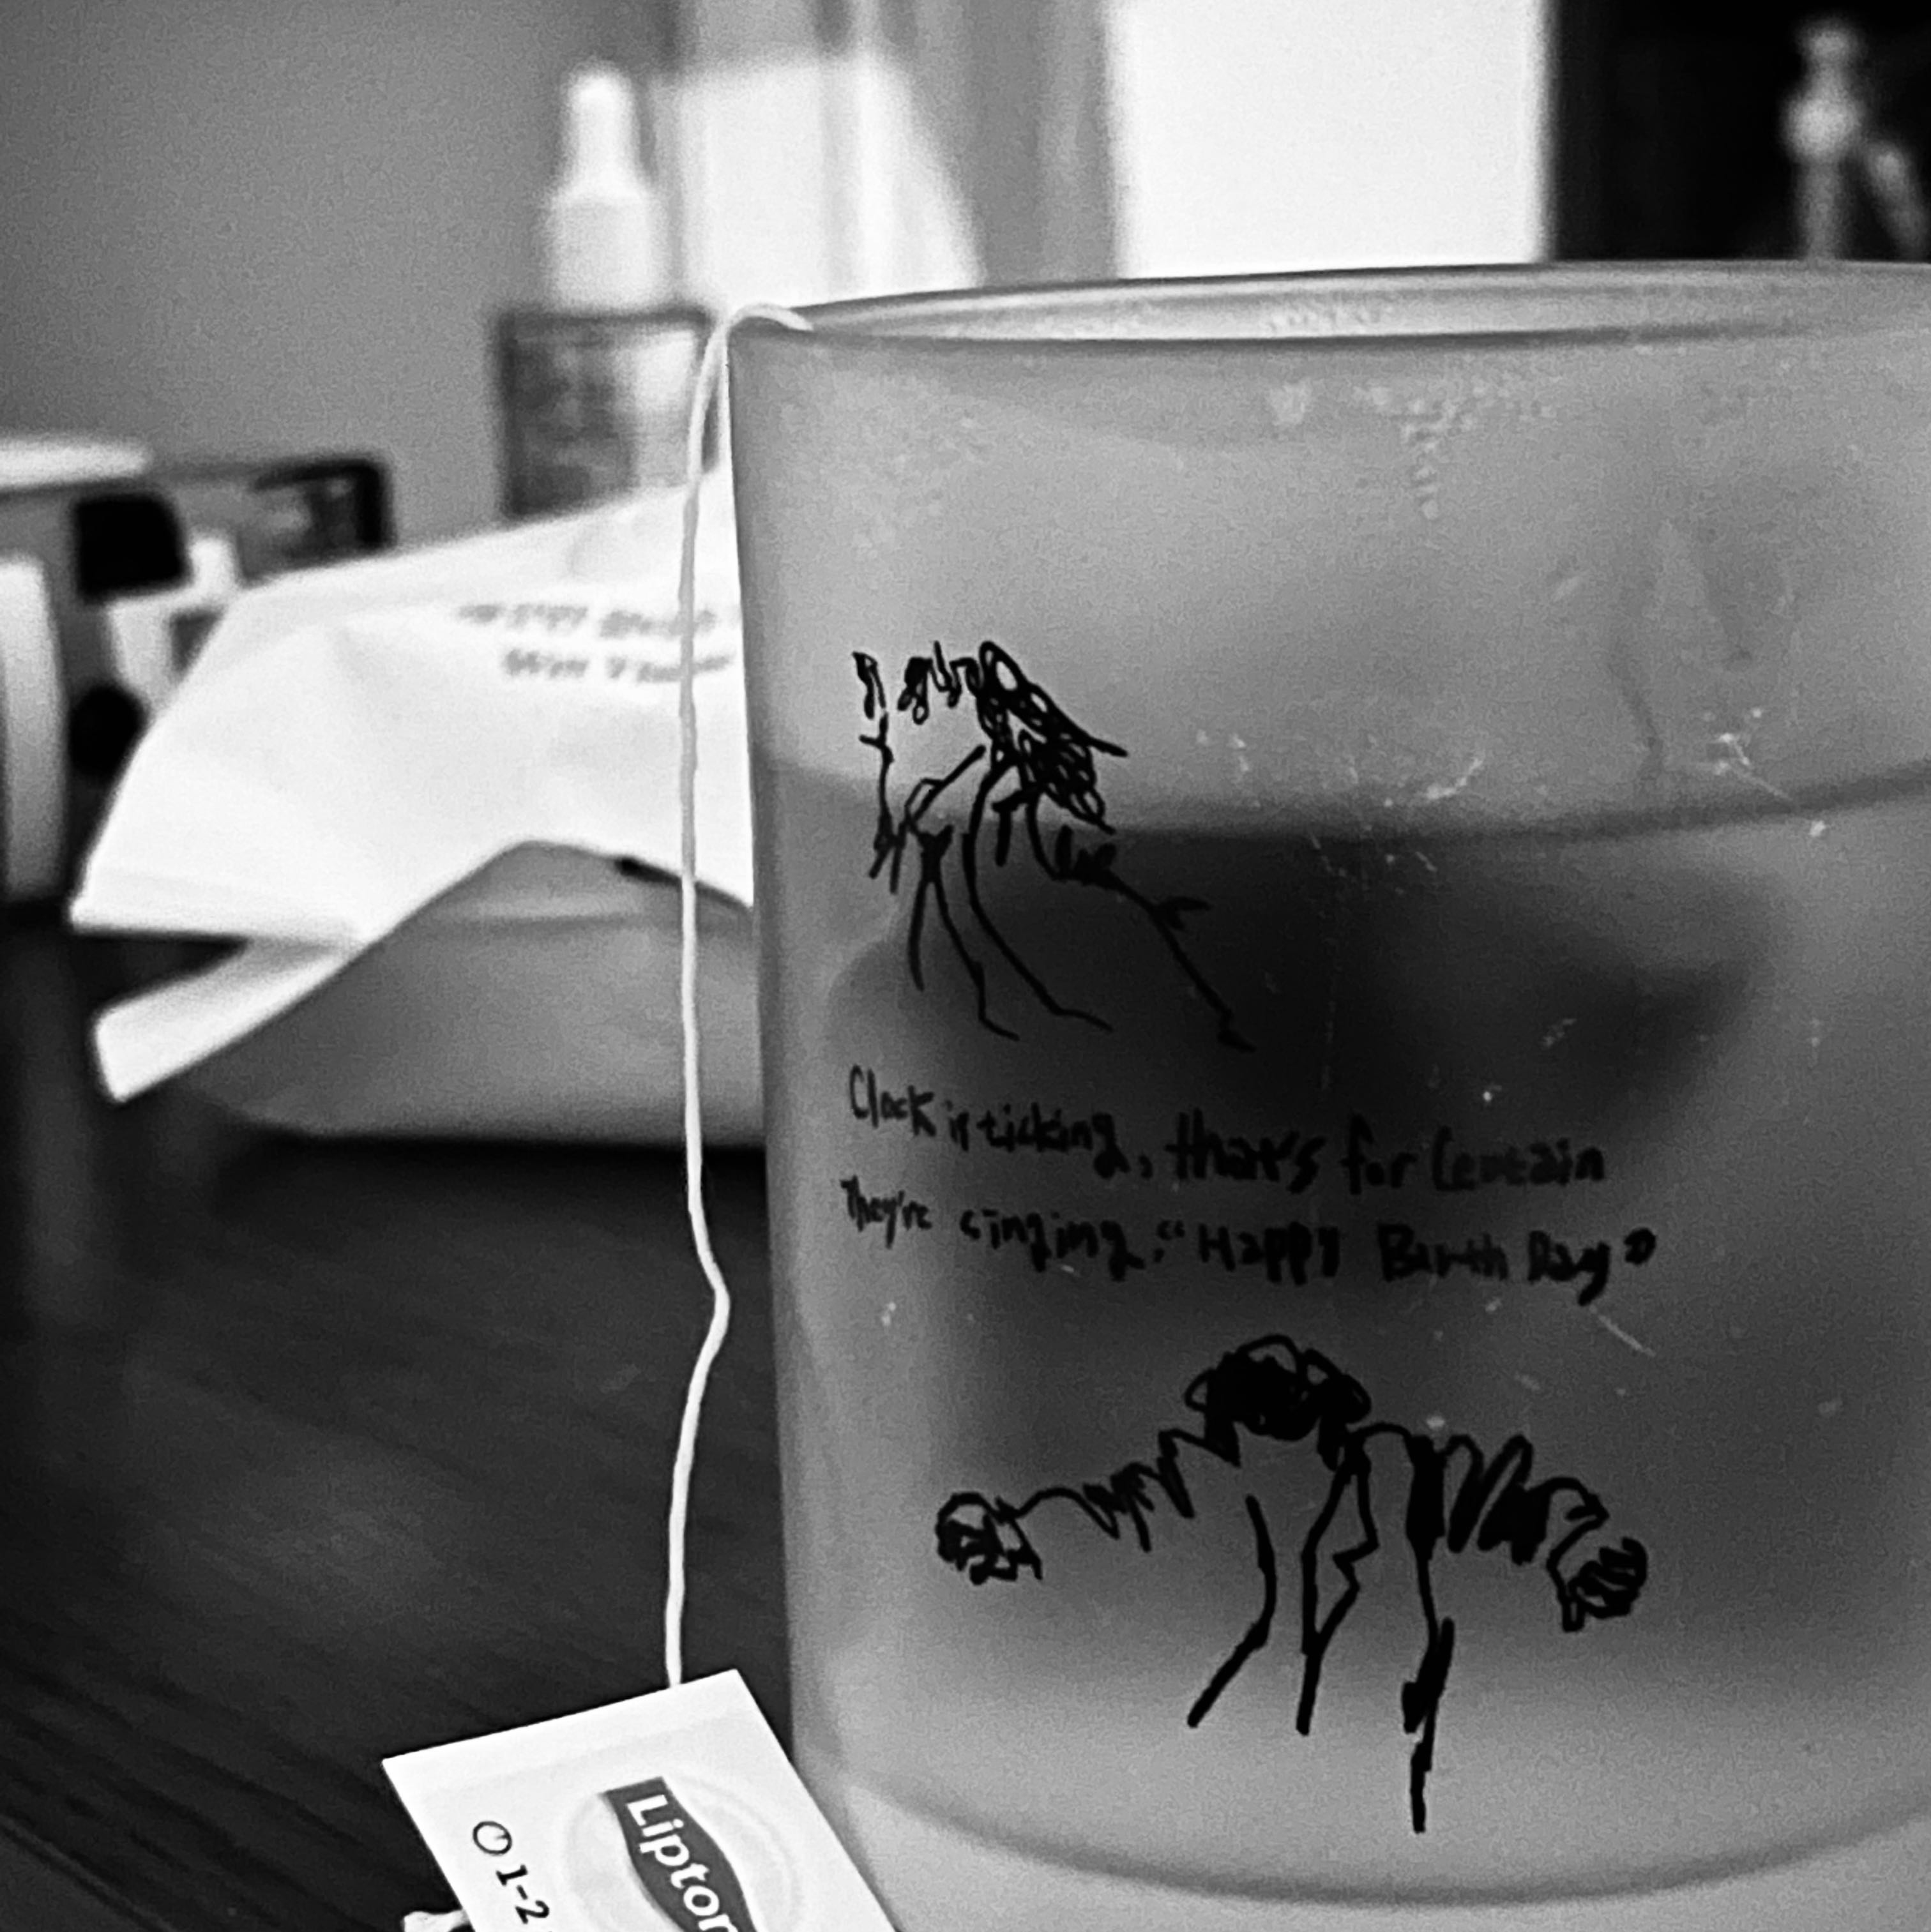 Clock is ticking, that's for Certain
They're singing "Happy Birth Day"
Lipton
1-2